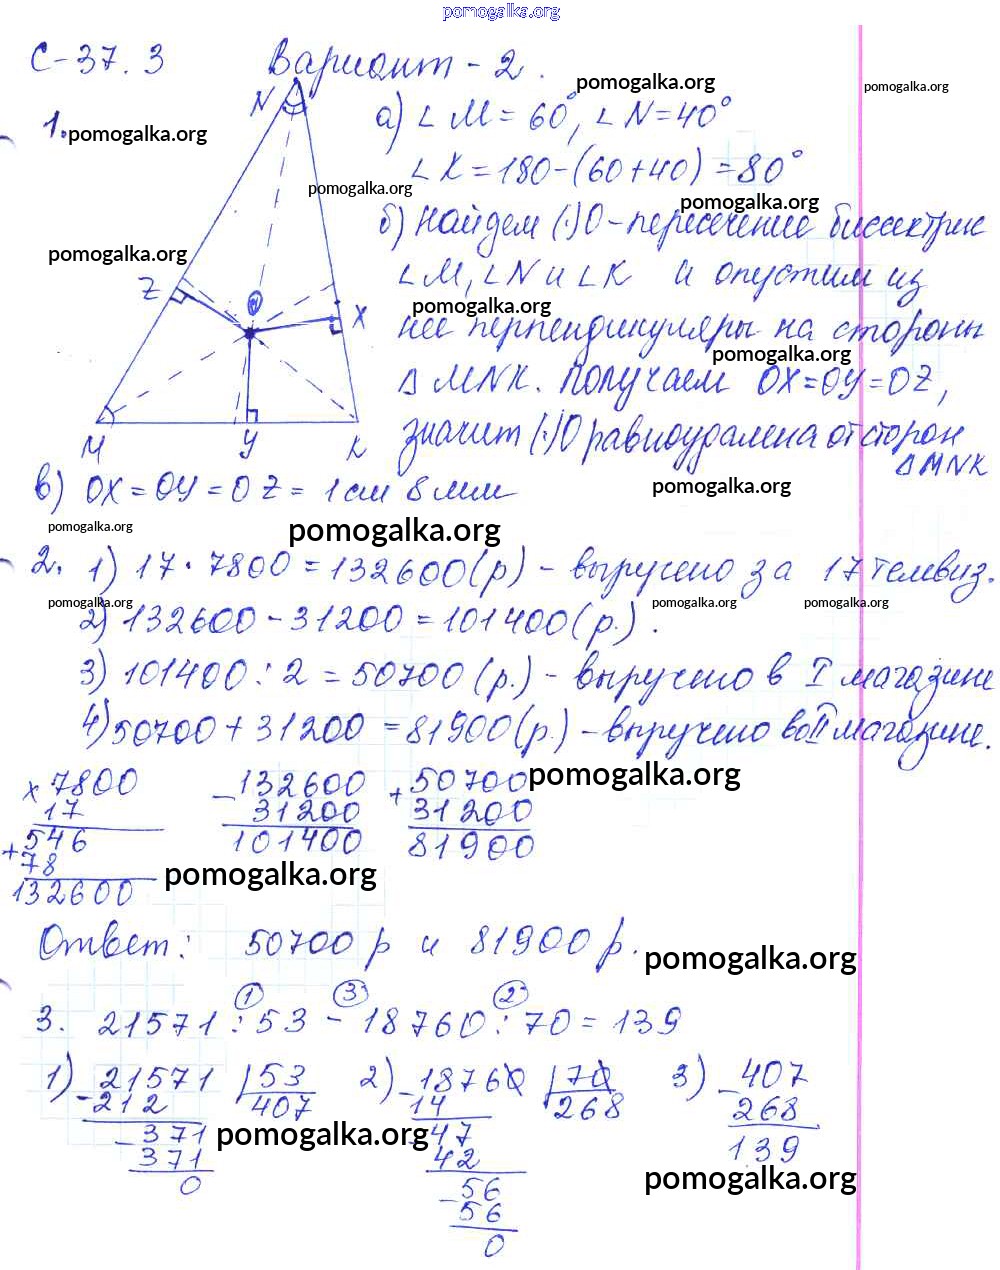 pomogalka.org
С-37.3 Вариант-2.
pomogalka.org
pomogalka.org
N
1.
pomogalka.org
а) ∠M=60°, ∠N=40°
∠K=180-(60+40)=80°
pomogalka.org
pomogalka.org
б) Найдем (·)O-пересечение биссектрис
pomogalka.org
∠M, ∠N и ∠K и опустим из
Z
O
X
pomogalka.org
нее перпендикуляры на стороны
pomogalka.org
Δ MNK. Получаем OX=OY=OZ,
значит (·)O равноудалена от сторон
Δ MNK
M Y K
в) OX=OY=OZ=1см 8мм
pomogalka.org
pomogalka.org
pomogalka.org
2. 1) 17·7800=132600(р) - выручено за 17 телевиз.
pomogalka.org
pomogalka.org
pomogalka.org
2) 132600-31200=101400(р.).
3) 101400:2=50700(р.) - выручено в I магазине
4) 50700+31200=81900(р.) - выручено во II магазине.
pomogalka.org
×7800
17
+546
78
132600
-132600
31200
101400
+50700
31200
81900
pomogalka.org
Ответ: 50700 р и 81900 р.
pomogalka.org
① ③ ②
3. 21571:53-18760:70=139
1) -21571 |53
212 407
-371
371
0
2) -18760 |70
14 268
-47
42
-56
56
0
3) -407
268
139
pomogalka.org
pomogalka.org